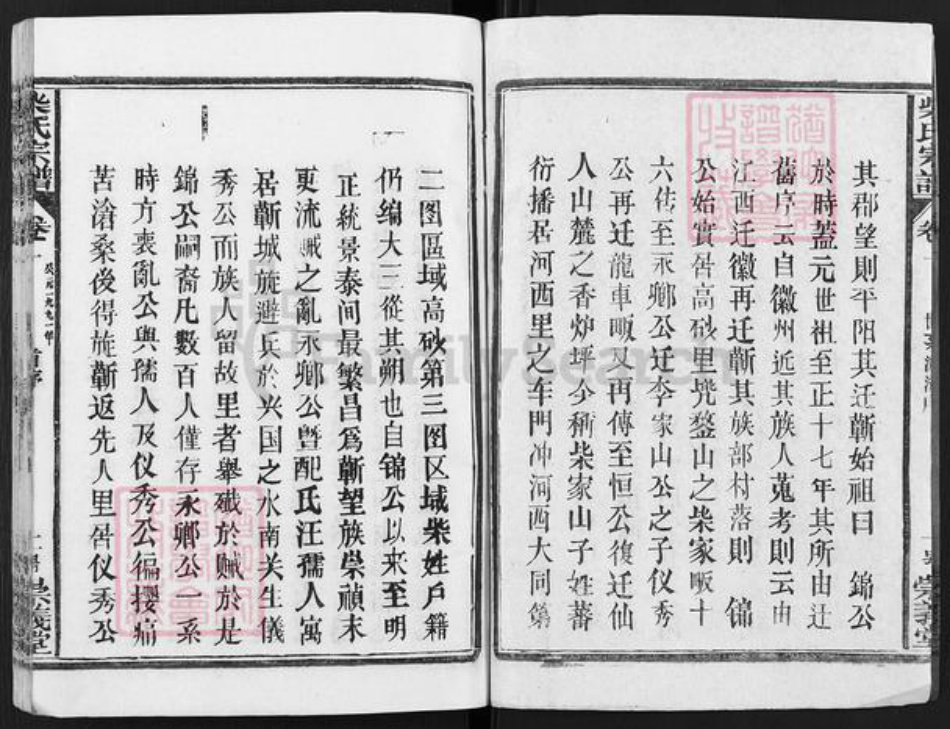 其郡望則平阳其迁蘄始祖曰 錦公
於時蓋元世祖至正十七年其所由迁
舊序云自徽州近其族人蒐考則云由
江西迁徽再迁蘄其族部村落則 錦
公始實居高砍里凭鍪山之柴家畈十
六传至永卿公迁李家山公之子仪秀
公再迁龍車畈又再傳至恒公復迁仙
人山麓之香炉坪今稱柴家山子姓蕃
衍播居河西里之车門冲河西大同第
二图區域高砍第三图区域柴姓户籍
仍编大三從其朔也自锦公以來至明
正統景泰间最繁昌爲蘄望族崇禎末
更流贼之亂永卿公暨配氏汪孺人寓
居蘄城旋避兵於兴国之水南关生儀
秀公而族人留故里者舉殱於贼於是
錦公嗣裔凡數百人僅存永卿公一系
時方喪亂公與孺人及仪秀公徧撄痛
苦滄桑後得旋蘄返先人里居仪秀公
柴氏宗譜 卷一 公元一九九一年 二 崇義堂
柴氏宗譜 卷一 一 崇義堂
FamilySearch